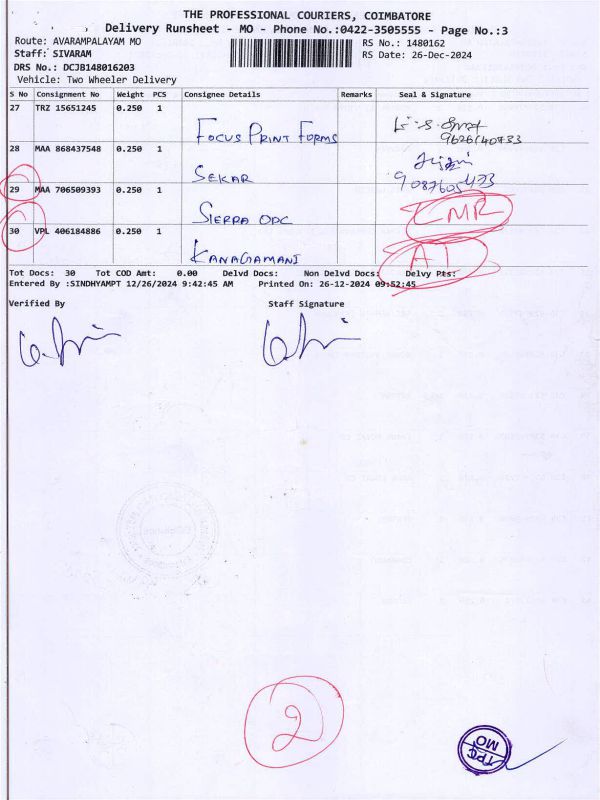 THE PROFESSIONAL COURIERS, COIMBATORE
Delivery Runsheet - MO - Phone No.:0422-3505555 - Page No.:3
Route: AVARAMPALAYAM MO RS No.: 1480162
Staff: SIVARAM RS Date: 26-Dec-2024
DRS No.: DCJB148016203
Vehicle: Two Wheeler Delivery
S No Consignment No Weight PCS Consignee Details Remarks Seal & Signature
27 TRZ 15651245 0.250 1
FOCUS PRINT FORMS 9626140733
28 MAA 868437548 0.250 1
SEKAR 9087605433
29 MAA 706509393 0.250 1
SIERRA ODC CMR
30 VPL 406184886 0.250 1
KANAGAMANI AI
Tot Docs: 30 Tot COD Amt: 0.00 Delvd Docs: Non Delvd Docs: Delvy Pts:
Entered By :SINDHYAMPT 12/26/2024 9:42:45 AM Printed On: 26-12-2024 09:52:45
Verified By Staff Signature
2
TPC
MO